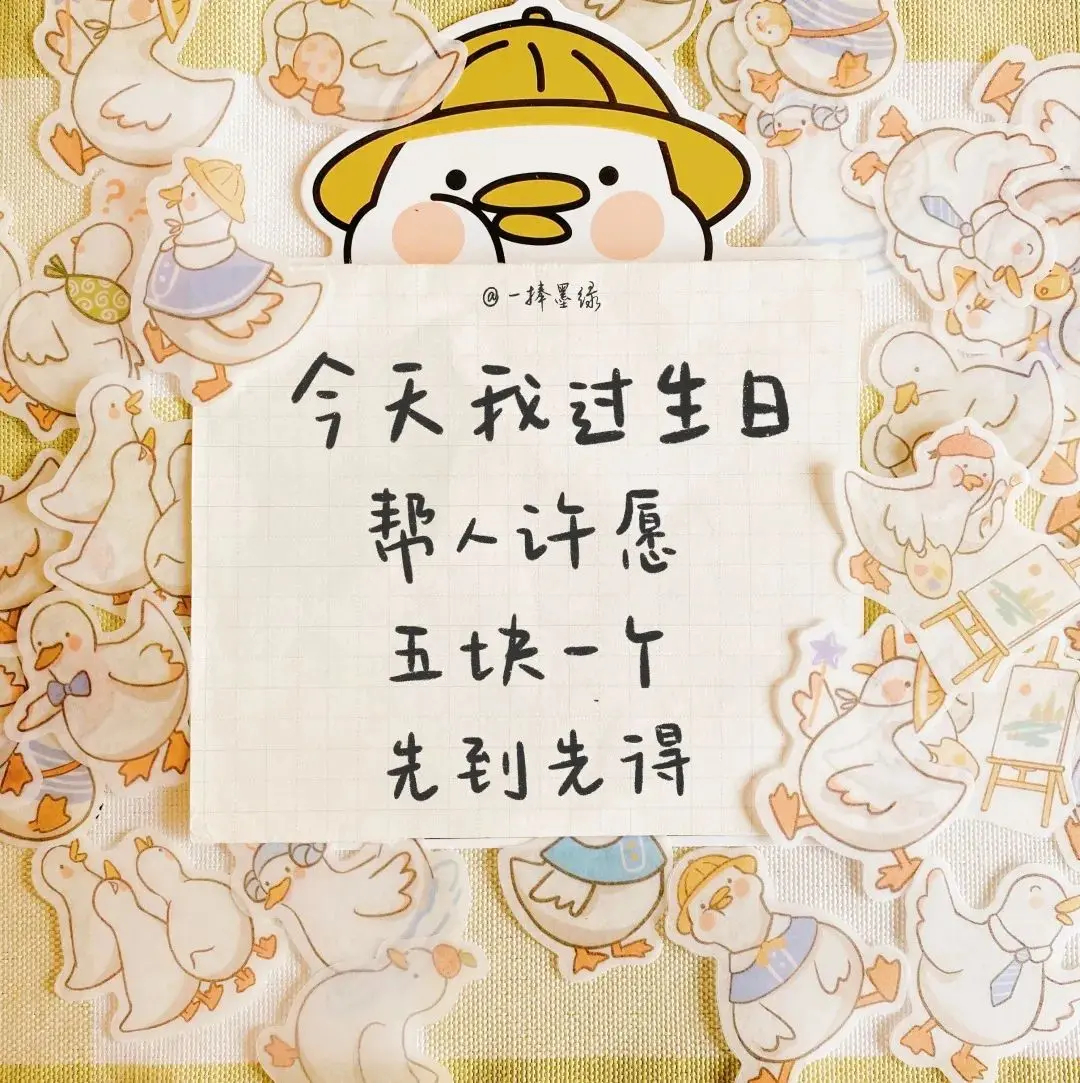 @一捧墨绿
今天我过生日
帮人许愿
五块一个
先到先得
? ?